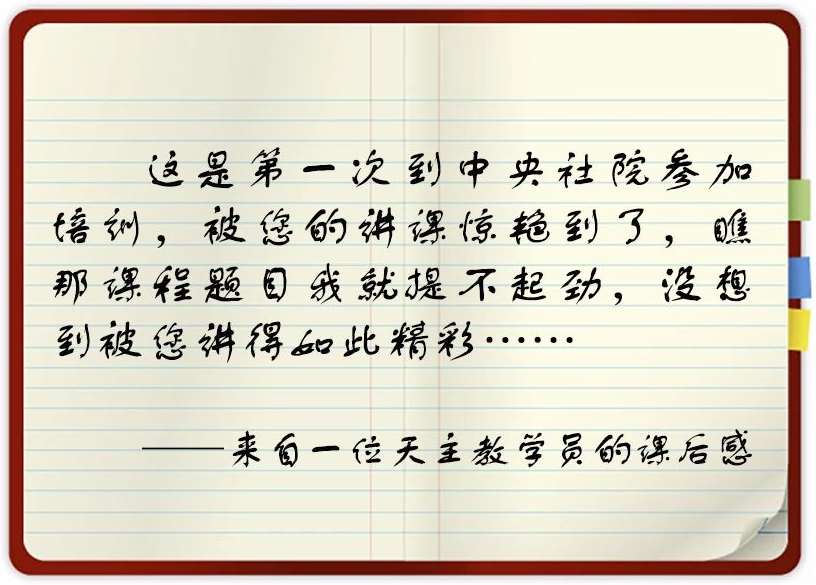 这是第一次到中央社院参加
培训，被您的讲课惊艳到了，瞧
那课程题目我就提不起劲，没想
到被您讲得如此精彩……
——来自一位天主教学员的课后感